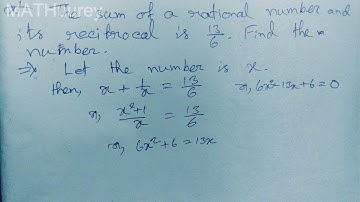 MATHTurey
The sum of a rational number and
its reciprocal is 13/6. Find the
number.
⇒ Let the number is x.
then, x + 1/x = 13/6
or, x²+1/x = 13/6
or, 6x²+6 = 13x
or, 6x²-13x+6=0